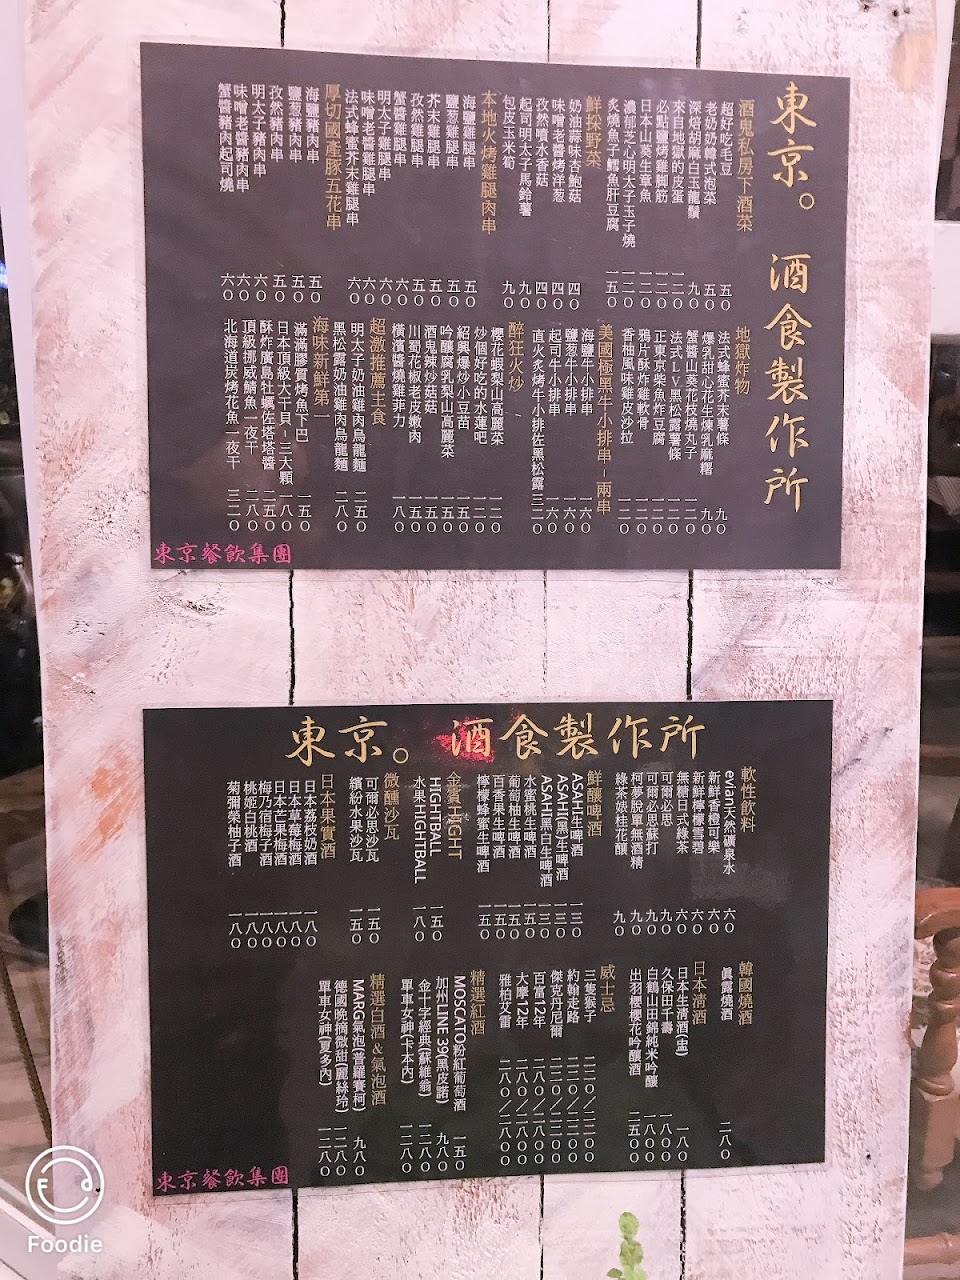 東京。酒食製作所
酒鬼私房下酒菜
超好吃毛豆 五〇
老奶奶韓式泡菜 五〇
深焙胡麻白玉龍鬚 九〇
來自地獄的皮蛋 一二〇
必點鹽烤雞腳筋 一二〇
日本山葵生章魚 一二〇
濃郁芝心明太子玉子燒 一二〇
炙燒魚子鱈魚肝豆腐 一五〇
鮮採野菜
奶油蒜味杏鮑菇 四〇
味噌老醬烤洋葱 四〇
孜然噴水香菇 四〇
起司明太子馬鈴薯 九〇
包皮玉米筍 九〇
本地火烤雞腿肉串
海鹽雞腿串 五〇
鹽葱雞腿串 五〇
芥末雞腿串 五〇
孜然雞腿串 五〇
蟹醬雞腿串 六〇
明太子雞腿串 六〇
味噌老醬雞腿串 六〇
法式蜂蜜芥末雞腿串 六〇
厚切國產豚五花串
海鹽豬肉串 五〇
鹽葱豬肉串 五〇
孜然豬肉串 五〇
明太子豬肉串 六〇
味噌老醬豬肉串 六〇
蟹醬豬肉起司燒 六〇
地獄炸物
法式蜂蜜芥末薯條 九〇
爆乳甜心花生煉乳麻糬 九〇
蟹醬山葵花枝燒丸子 一二〇
法式LV黑松露薯條 一二〇
正東京柴魚炸豆腐 一二〇
鴉片酥炸雞軟骨 一二〇
香柚風味雞皮沙拉 一二〇
美國極黑牛小排串-兩串
海鹽牛小排串 一六〇
鹽葱牛小排串 一六〇
起司牛小排串 一六〇
直火炙烤牛小排佐黑松露 三二〇
醉狂火炒
櫻花蝦梨山高麗菜 一二〇
炒個好吃的水蓮吧 一二〇
紹興爆炒小豆苗 一五〇
吟釀腐乳梨山高麗菜 一五〇
酒鬼辣炒菇菇 一五〇
川蜀花椒老皮嫩肉 一五〇
橫濱醬燒雞菲力 一八〇
超激推薦主食
明太子奶油雞肉烏龍麵 二五〇
黑松露奶油雞肉烏龍麵 二八〇
海味新鮮第一
滿滿膠質烤魚下巴 一五〇
日本頂級大干貝-三大顆 一八〇
酥炸廣島牡蠣佐塔塔醬 二五〇
頂級挪威鯖魚一夜干 二八〇
北海道炭烤花魚一夜干 三二〇
東京餐飲集團
東京。酒食製作所
軟性飲料
evian天然礦泉水 六〇
新鮮香橙可樂 六〇
新鮮檸檬雪碧 六〇
無糖日式綠茶 六〇
可爾必思 九〇
可爾必思蘇打 九〇
柯夢脫單無酒精 九〇
綠茶婊桂花釀 九〇
鮮釀啤酒
ASAHI生啤酒 一三〇
ASAHI(黑)生啤酒 一三〇
ASAHI黑白生啤酒 一三〇
水蜜桃生啤酒 一五〇
葡萄柚生啤酒 一五〇
百香果生啤酒 一五〇
檸檬蜂蜜生啤酒 一五〇
金賓HIGHT
HIGHTBALL 一五〇
水果HIGHTBALL 一八〇
微醺沙瓦
可爾必思沙瓦 一五〇
繽紛水果沙瓦 一五〇
日本果實酒
日本荔枝奶酒 一八〇
日本草莓梅酒 一八〇
日本芒果梅酒 一八〇
梅乃宿梅子酒 一八〇
桃姬白桃酒 一八〇
菊彌榮柚子酒 一八〇
韓國燒酒
真露燒酒 二八〇
日本清酒
日本生清酒(盅) 一八〇
久保田千壽 一八〇〇
白鶴山田錦純米吟釀 一八〇〇
出羽櫻櫻花吟釀酒 二五〇〇
威士忌
三隻猴子 二二〇/二二〇〇
約翰走路 二二〇/二二〇〇
傑克丹尼爾 二二〇/二二〇〇
百富12年 二八〇/二八〇〇
大摩12年 二八〇/二八〇〇
雅柏艾雷 二八〇/二八〇〇
精選紅酒
MOSCATO粉紅葡萄酒 一五〇
加州LINE 39(黑皮諾) 九八〇
金十字經典(蘇維翁) 一二八〇
單車女神(卡本內) 一二八〇
精選白酒&氣泡酒
MARG氣泡(普羅賽柯) 九八〇
德國晚摘微甜(麗絲玲) 一二八〇
單車女神(夏多內) 一二八〇
東京餐飲集團
Foodie